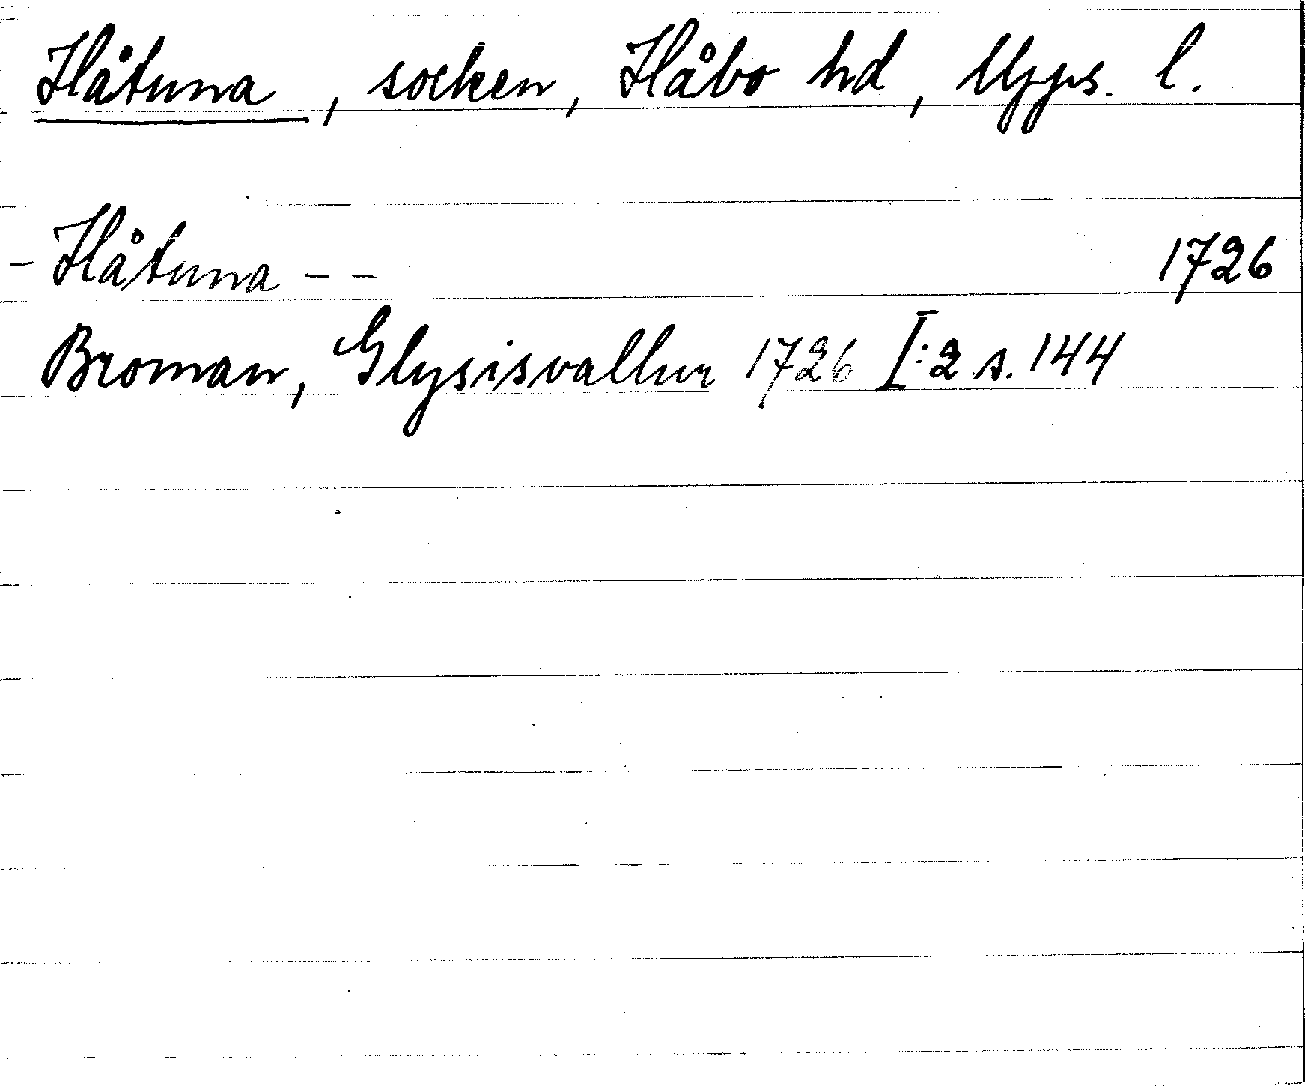 Håtuna, socken, Håbo hd, Upps. l.
- Håtuna - - 1726
Broman, Glysisvallur 1726 I:2 s. 144